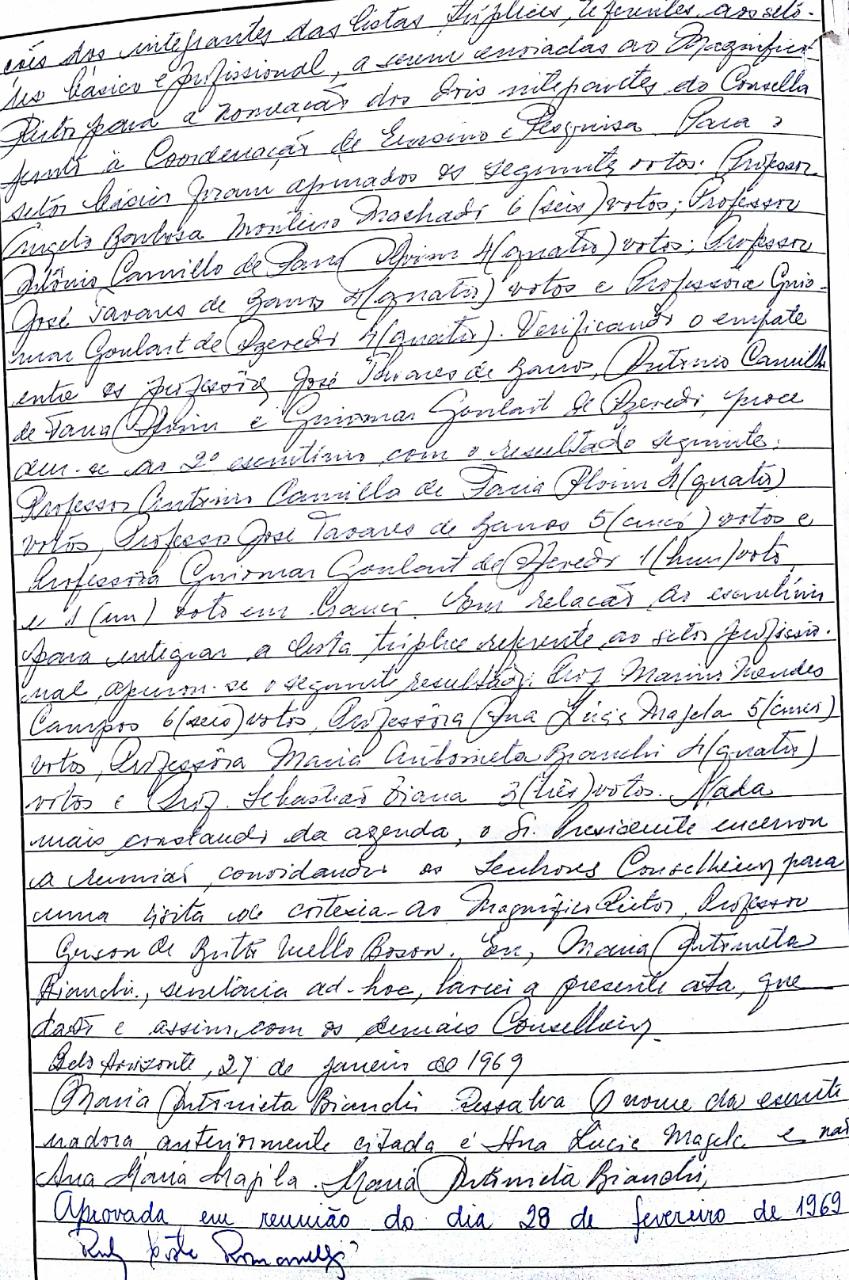 ções dos integrantes das listas tríplices, referentes aos setô-
res básico e profissional, a serem enviadas ao Magnífico
Reitor para a nomeação dos dois integrantes do Conselho
junto à Coordenação de Ensino e Pesquisa. Para o
setôr básico foram apurados os seguintes votos: Professor
Angelo Barbosa Monteiro Machado 6 (seis) votos; Professor
Antônio Camillo de Faria Alvim 4 (quatro) votos; Professor
José Tavares de Barros 4 (quatro) votos e Professôra Guio-
mar Goulart de Azevedo 4 (quatro). Verificando o empate
entre os professôres José Tavares de Barros, Antonio Camillo
de Faria Alvim e Guiomar Goulart de Azevedo, proce
deu-se ao 2º escrutínio com o resultado seguinte:
Professor Antonio Camillo de Faria Alvim 4 (quatro)
votos, Professor José Tavares de Barros 5 (cinco) votos e
Professôra Guiomar Goulart de Azevedo 1 (hum) voto
e 1 (um) voto em branco. Com relação ao escrutínio
para integrar a lista tríplice referente ao setor profissio-
nal, apurou-se o seguinte resultado: Prof Marcius Mendes
Campos 6 (seis) votos, Professôra Ana Lúcia Magela 5 (cinco)
votos, Professôra Maria Antonieta Bianchi 4 (quatro)
votos e Prof. Sebastião Viana 3 (três) votos. Nada
mais constando da agenda, o Sr. Presidente encerrou
a reunião, convidando os Senhores Conselheiros para
uma visita de cortezia ao Magnífico Reitor, Professor
Gerson de Britto Mello Boson. Eu, Maria Antonieta
Bianchi, secretária ad-hoc, lavrei a presente ata, que
dato e assino, com os demais Conselheiros.
Belo Horizonte, 27 de janeiro de 1969
Maria Antonieta Bianchi Ressalva O nome da escruti
nadora anteriormente citada é Ana Lúcia Magela e não
Ana Maria Mapila. Maria Antonieta Bianchi,
Aprovada em reunião do dia 28 de fevereiro de 1969
Romanelli